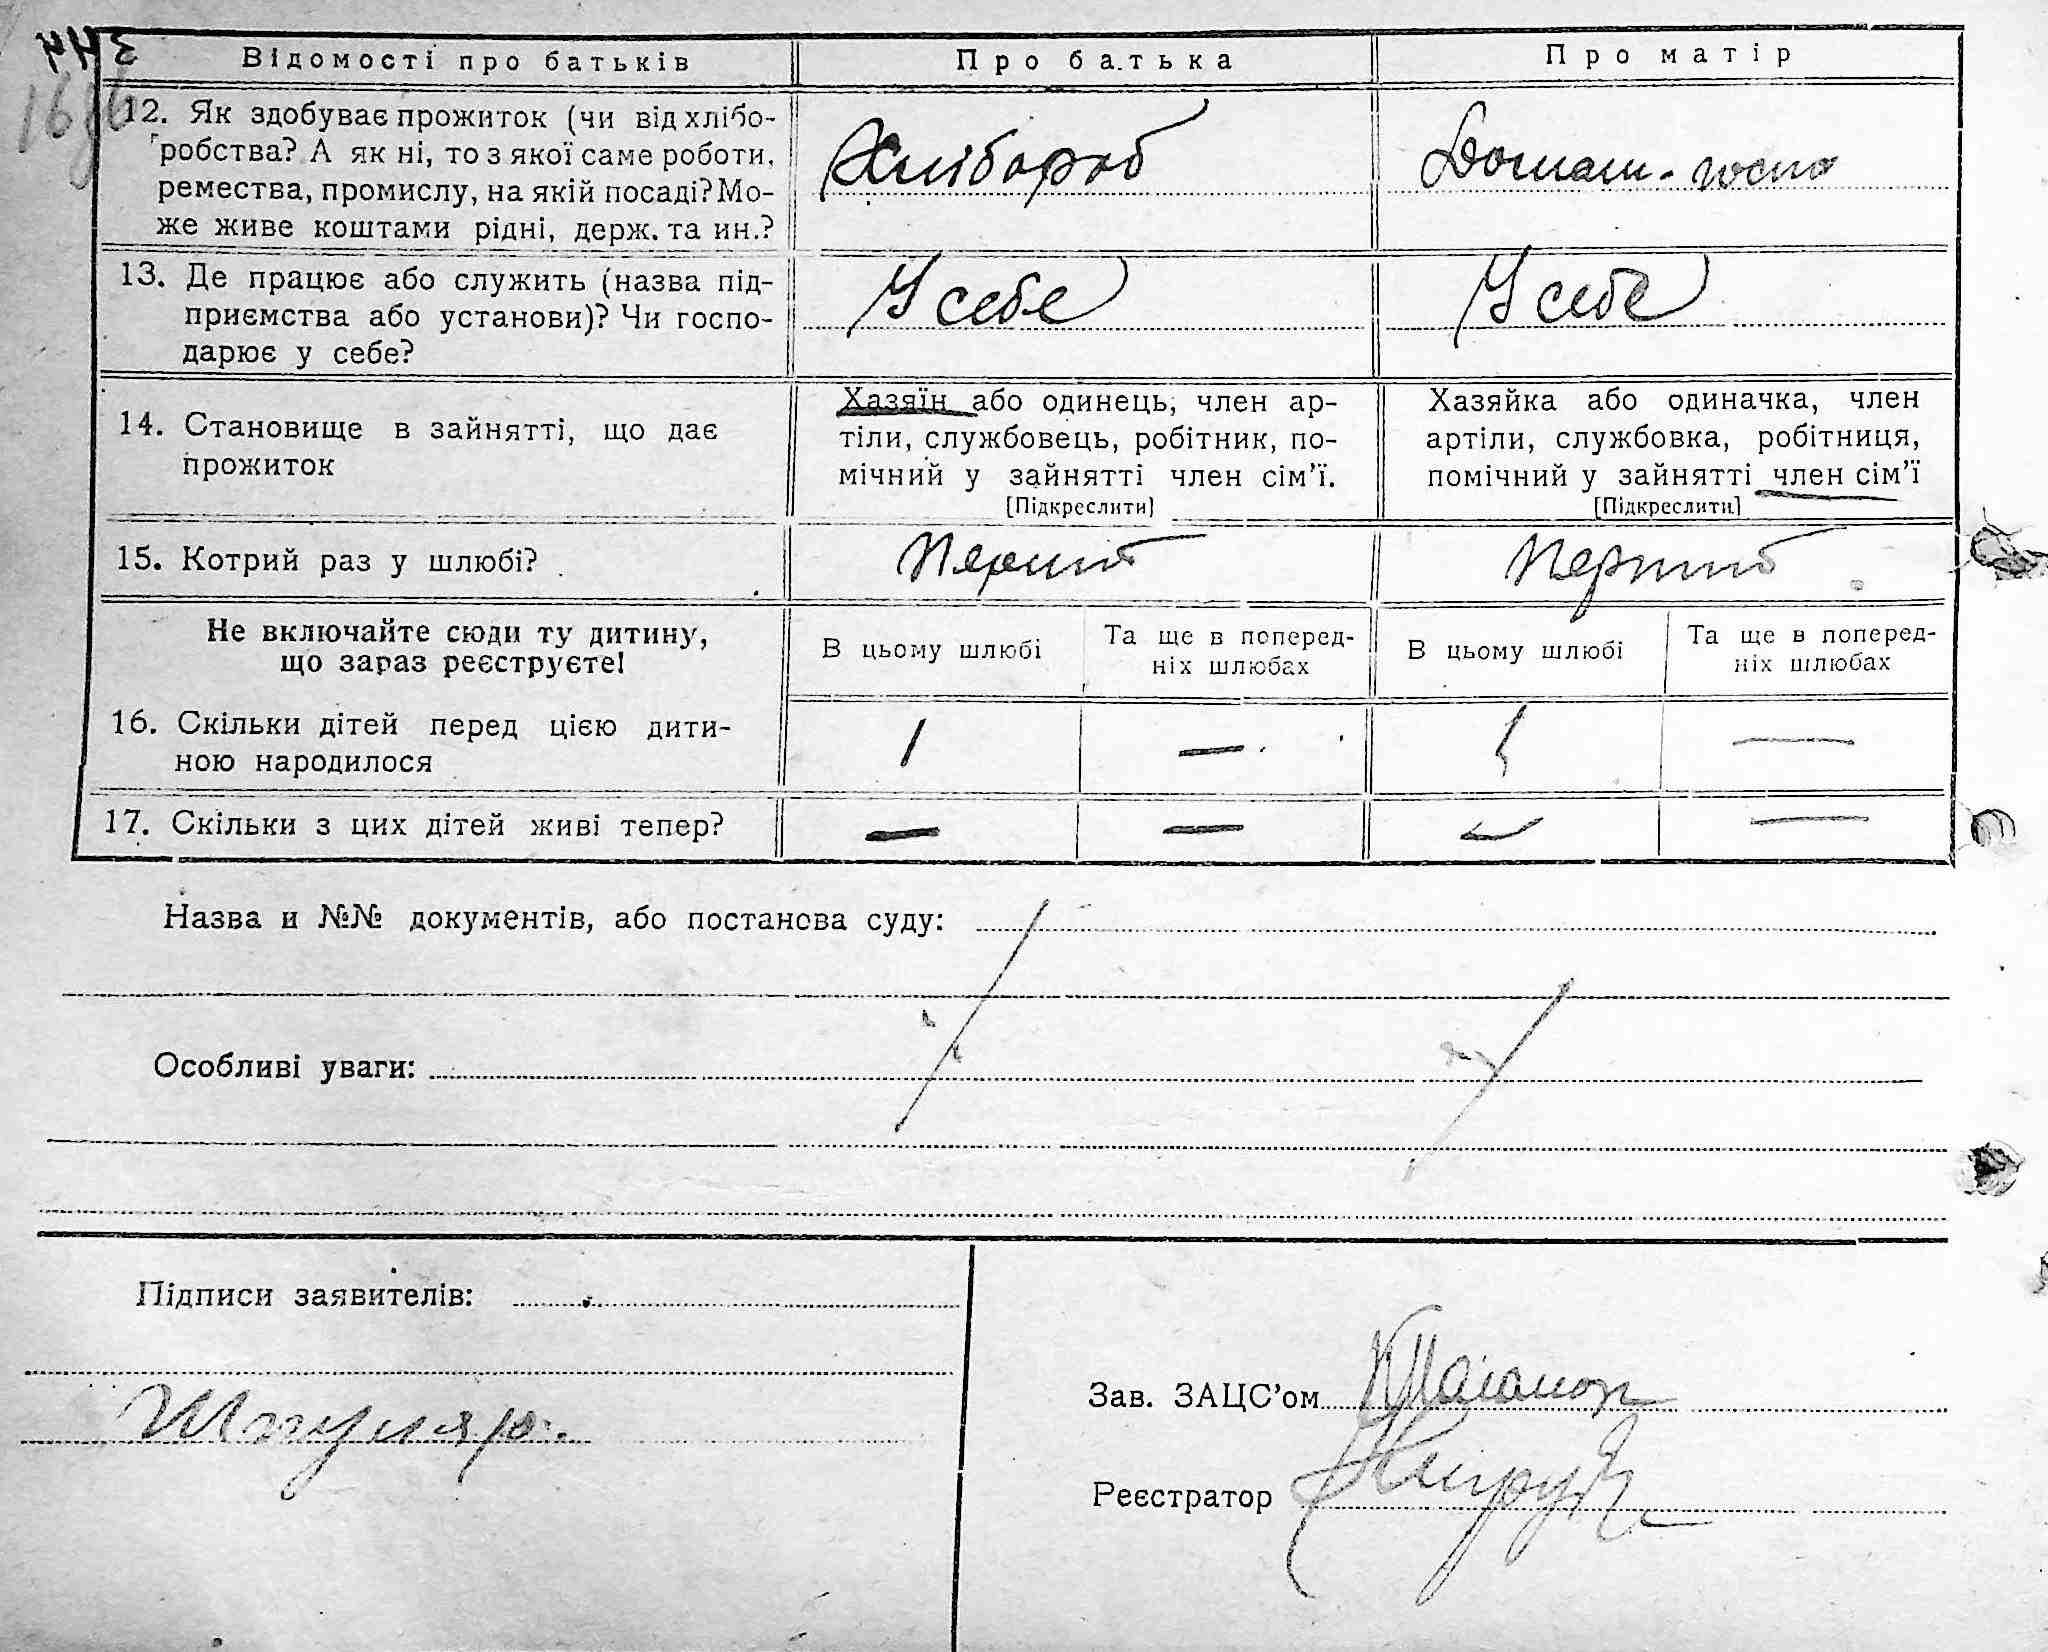 Відомості про батьків Про батька Про матір
12. Як здобуває прожиток (чи від хлібо-
робства? А як ні, то з якої саме роботи,
ремества, промислу, на якій посаді? Мо-
же живе коштами рідні, держ. та ин.?
Хлібороб
Домаш-госпо
13. Де працює або служить (назва під-
приємства або установи)? Чи госпо-
дарює у себе?
У себе
У себе
14. Становище в зайнятті, що дає
прожиток
Хазяїн або одинець, член ар-
тіли, службовець, робітник, по-
мічний у зайнятті член сім'ї.
[Підкреслити]
Хазяйка або одиначка, член
артіли, службовка, робітниця,
помічний у зайнятті член сім'ї
[Підкреслити]
15. Котрий раз у шлюбі?
Перший
Перший
Не включайте сюди ту дитину,
що зараз реєструєте!
В цьому шлюбі
Та ще в поперед-
ніх шлюбах
В цьому шлюбі
Та ще в поперед-
ніх шлюбах
16. Скільки дітей перед цією дити-
ною народилося
1 — 1 —
17. Скільки з цих дітей живі тепер?
— — — —
Назва и №№ документів, або постанова суду:
Особливі уваги:
Підписи заявителів:
Зав. ЗАЦС'ом
Реєстратор